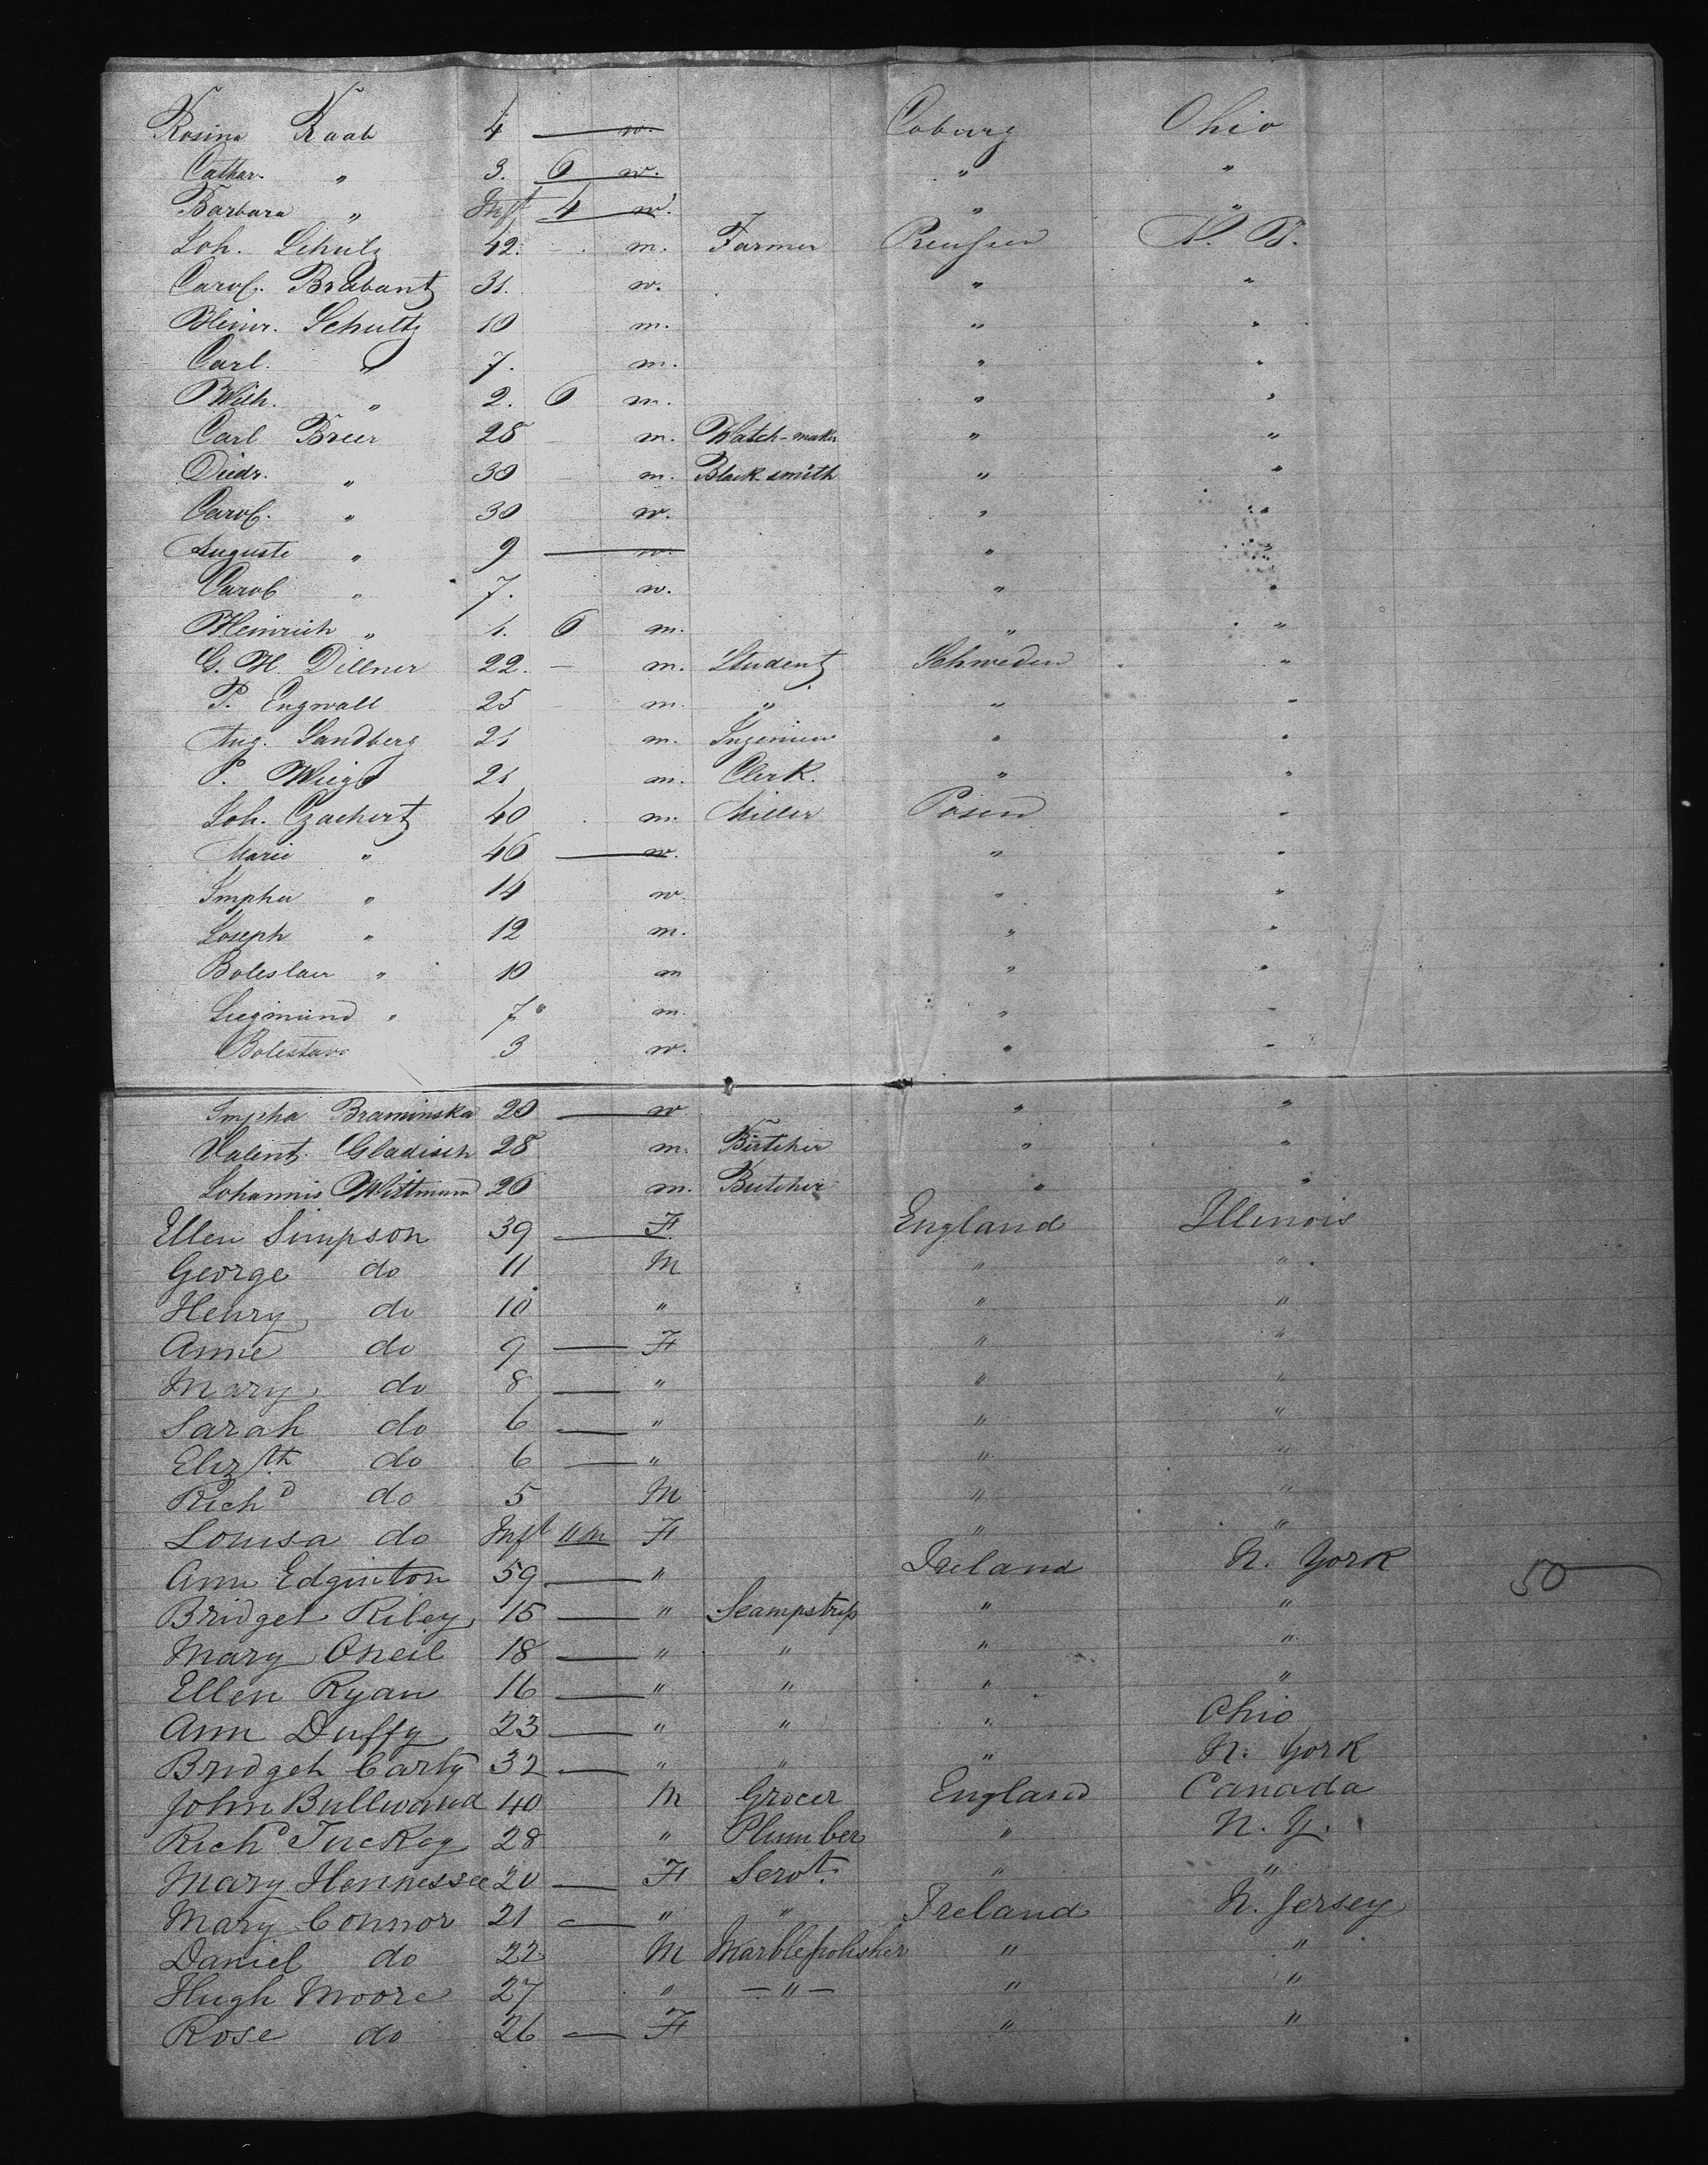 Rosina Raab 4 — w. Coburg Ohio
Cathar. " 3. 6 w. " "
Barbara " Inft 4 w. " "
Joh. Schulz 42. - m. Farmer Preussen N. Y.
Carol. Brabantz 31. w. " "
Heinr. Schultz 10 m. " "
Carl. " 7. m. " "
Wilh. " 2. 6 m. " "
Carl Breer 28 m. Watch-maker " "
Diedr. " 30 m. Black smith " "
Carol. " 30 w. " "
Auguste " 9 — w. " "
Carol " 7. w. " "
Heinrich " 1. 6 m. " "
G. H. Dillner 22. — m. Student Schweden "
P. Engwall 25 - m. " " "
Aug. Sandberg 21 m. Ingenieur " "
P. 21 m. Clerk. " "
Joh. Czachert 40 m. Miller Posen "
Marie " 46 — w. " "
" 14 w. " "
Joseph " 12 m. " "
Boleslau " 10 m " "
Siegmund " 7 m. " "
3 w. " "
Braminska 20 — w " "
Valent. Gladisch 28 m. Bütcher " "
Johannis Wittmann 26 m. Butcher " "
Ellen Simpson 39 — F England Illinois
George do 11 M " "
Henry do 10 " " "
Anne do 9 — F " "
Mary do 8 — " " "
Sarah do 6 — " " "
Elizth do 6 — " " "
Richd do 5 M " "
Louisa do Inft 11m F " "
Ann Edginton 59 — " Ireland N. York 50
Bridget Riley 15 — " Seampstress " "
Mary Oneil 18 — " " " "
Ellen Ryan 16 — " " " "
Ann Duffy 23 — " " " Ohio
Bridget Carty 32 — " " " N. York
John Bullwand 40 M Grocer England Canada
Richd Tuckey 28 " Plumber " N. Y.
Mary Hennessee 20 — F Servt. " "
Mary Connor 21 — " " Ireland N. Jersey
Daniel do 22 M Marblepolisher " "
Hugh Moore 27 " — " — " "
Rose do 26 — F " "